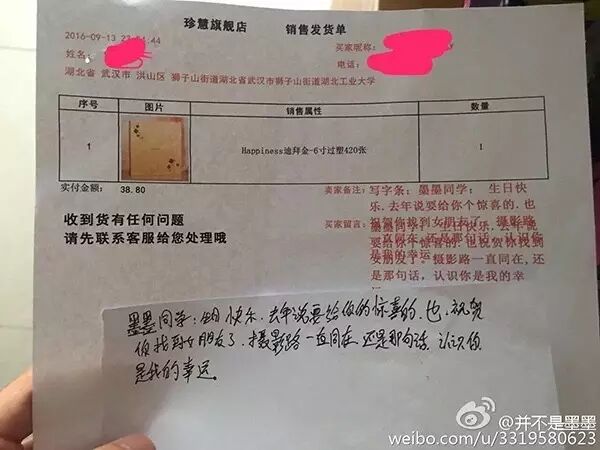 珍慧旗舰店 销售发货单
2016-09-13 23:51:44 买家昵称:
姓名: 电话:
湖北省 武汉市 洪山区 狮子山街道湖北省武汉市狮子山街道湖北工业大学
序号 图片 销售属性 数量
1 Happiness迪拜金-6寸过塑420张 1
实付金额: 38.80
收到货有任何问题
请先联系客服给您处理哦
卖家备注: 写字条：墨墨同学： 生日快
乐.去年说要给你个惊喜的.也
祝贺你找到女朋友了. 摄影路
一直同在.还是那句话.认识你
是我的幸运
买家留言: 墨墨同学： 生日快乐.去年说
要给你个惊喜的.也祝贺你找到
女朋友了.摄影路一直同在,还
是那句话，认识你是我的幸
运
墨墨同学：生日快乐.去年说要给你的惊喜的.也.祝贺
你找到女朋友了.摄影路一直同在.还是那句话.认识你
是我的幸运.
@并不是墨墨
weibo.com/u/3319580623